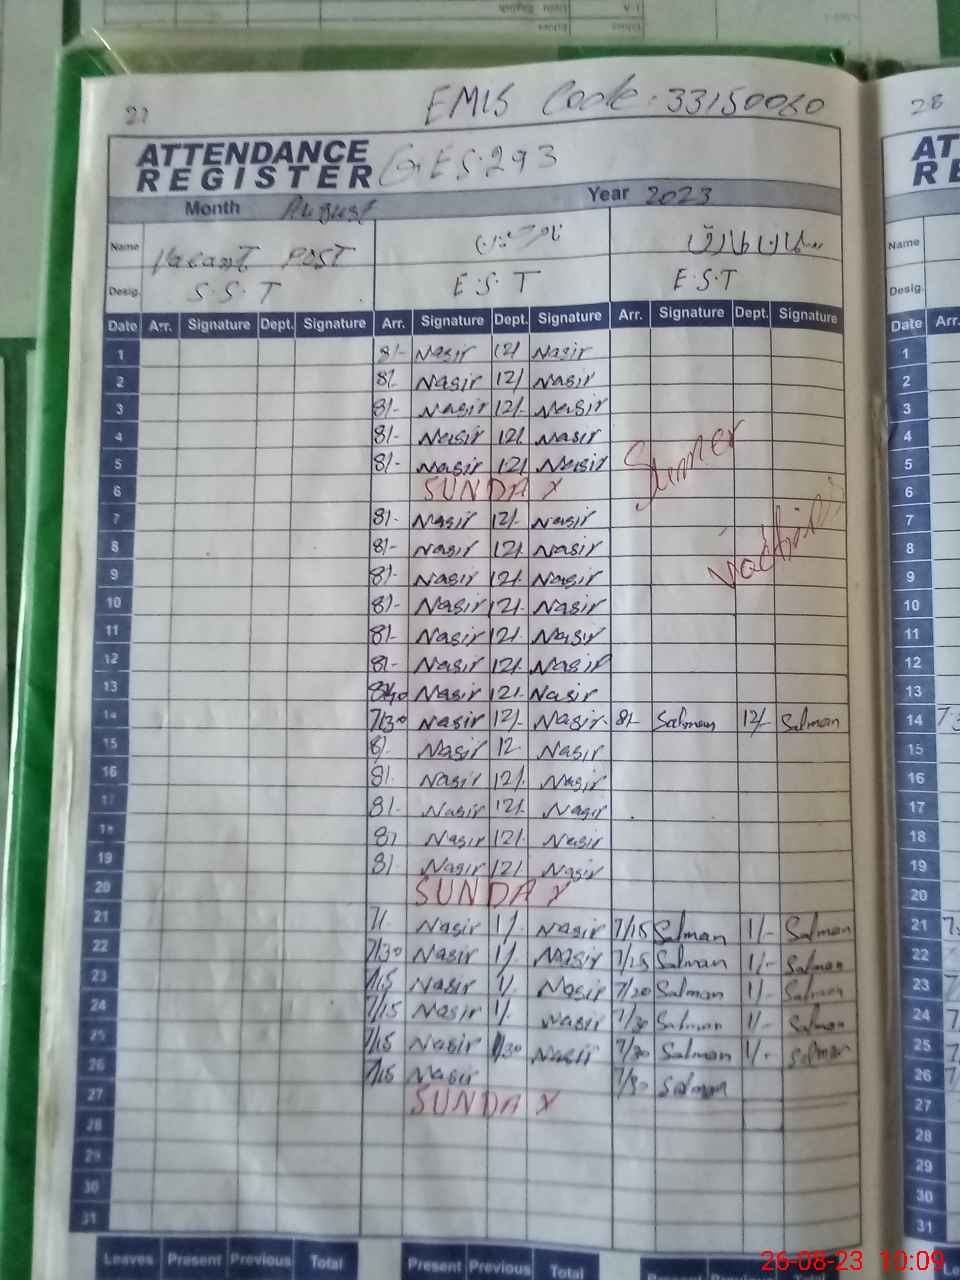 27
EMIS Code: 33150060
28
ATTENDANCE
REGISTER G.E.S. 293
Month August Year 2023
Name Vacant POST سلمان طارق Name
Desig. S.S.T E.S.T E.S.T Desig.
Date Arr. Signature Dept. Signature Arr. Signature Dept. Signature Arr. Signature Dept. Signature Date Arr.
1 8/- Nasir 12/ Nasir 1
2 8/ Nasir 12/ Nasir 2
3 8/- Nasir 12/- Nasir 3
4 8/- Nasir 12/ Nasir 4
5 8/- Nasir 12/ Nasir Summer 5
6 SUNDAY 6
7 8/- Nasir 12/- Nasir 7
8 8/- Nasir 12/ Nasir 8
9 8/- Nasir 12/ Nasir 9
10 8/- Nasir 12/- Nasir 10
11 8/- Nasir 12/- Nasir 11
12 8/- Nasir 12/- Nasir 12
13 Nasir 12/- Nasir 13
14 7/30 Nasir 12/- Nasir 8/- Salman 12/- Salman 14
15 8/- Nasir 12 Nasir 15
16 8/- Nasir 12/ Nasir 16
17 8/- Nasir 12/ Nasir 17
18 8/ Nasir 12/ Nasir 18
19 8/- Nasir 12/ Nasir 19
20 SUNDAY 20
21 7/- Nasir 1/- Nasir 7/15 Salman 1/- Salman 21
22 7/30 Nasir 1/- Nasir 7/25 Salman 1/- Salman 22
23 7/15 Nasir 1/- Nasir 7/20 Salman 1/- Salman 23
24 7/15 Nasir 1/- Nasir 7/30 Salman 1/- Salman 24
25 7/15 Nasir Nasir 7/30 Salman 1/- Salman 25
26 7/15 Nasir 7/30 Salman 26
27 SUNDAY 27
28 28
29 29
30 30
31 31
Leaves Present Previous Total Present Previous Total Present Previous Total
26-08-23 10:09